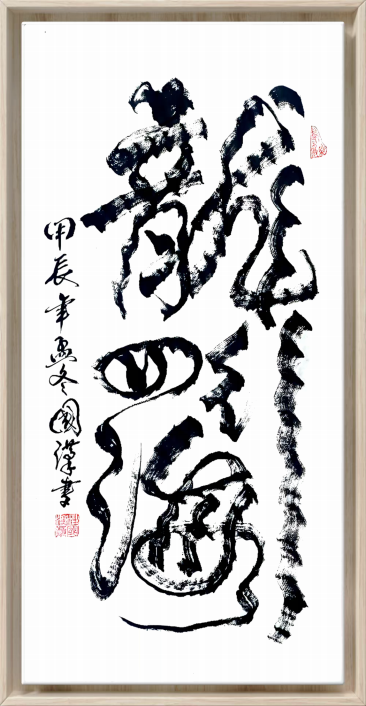 龍
四海
甲辰年孟冬國漢書